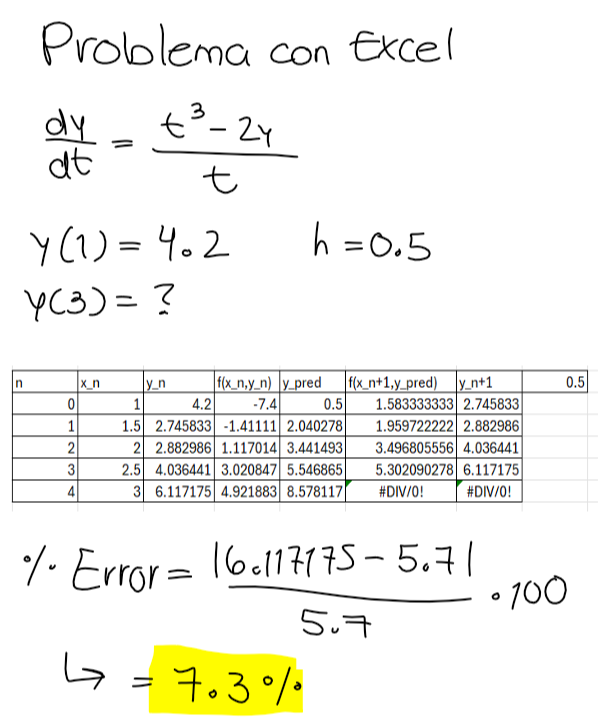 Problema con Excel
dy/dt = (t³ - 2y)/t
y(1) = 4.2 h = 0.5
y(3) = ?
n x_n y_n f(x_n,y_n) y_pred f(x_n+1,y_pred) y_n+1 0.5
0 1 4.2 -7.4 0.5 1.583333333 2.745833
1 1.5 2.745833 -1.41111 2.040278 1.959722222 2.882986
2 2 2.882986 1.117014 3.441493 3.496805556 4.036441
3 2.5 4.036441 3.020847 5.546865 5.302090278 6.117175
4 3 6.117175 4.921883 8.578117 #DIV/0! #DIV/0!
% Error = |6.117175 - 5.7|/5.7 · 100
↳ = 7.3%